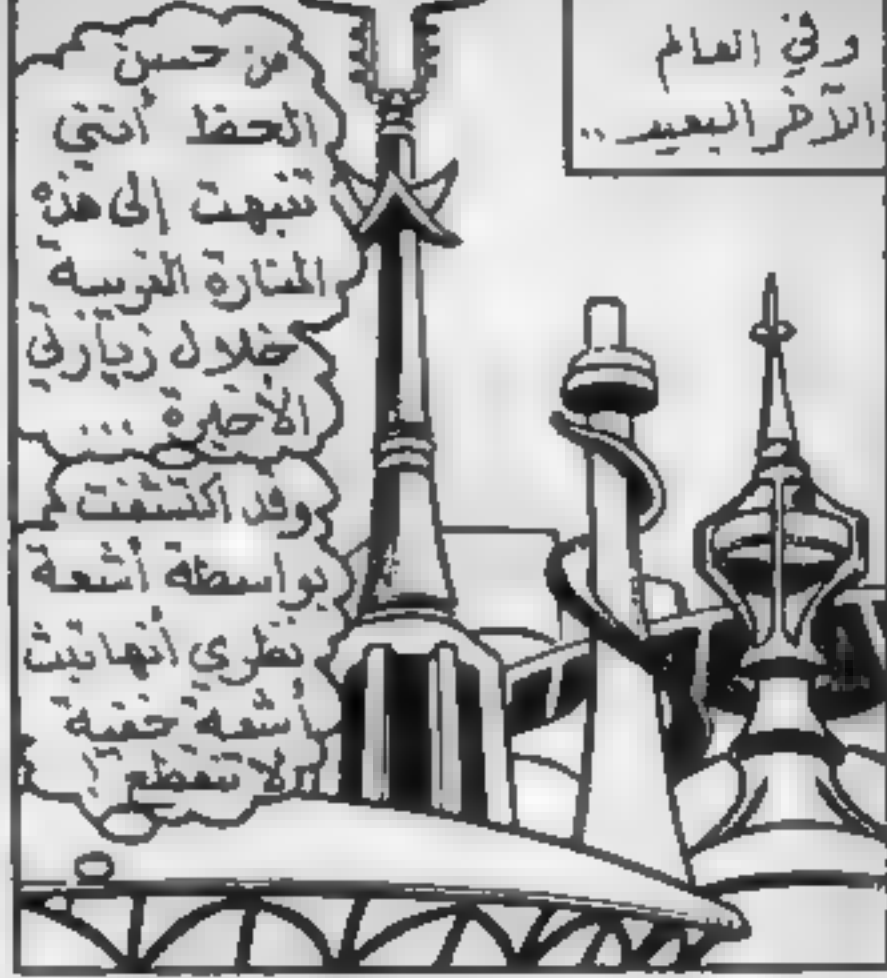 وفي العالم
الآخر البعيد ..
من حسن
الحظ أنني
تنبهت إلى هذه
المنارة الغريبة
خلال زيارتي
الأخيرة ...
وقد اكتشفت
بواسطة أشعة
نظري أنها تبث
أشعة خفية
لا تنقطع !